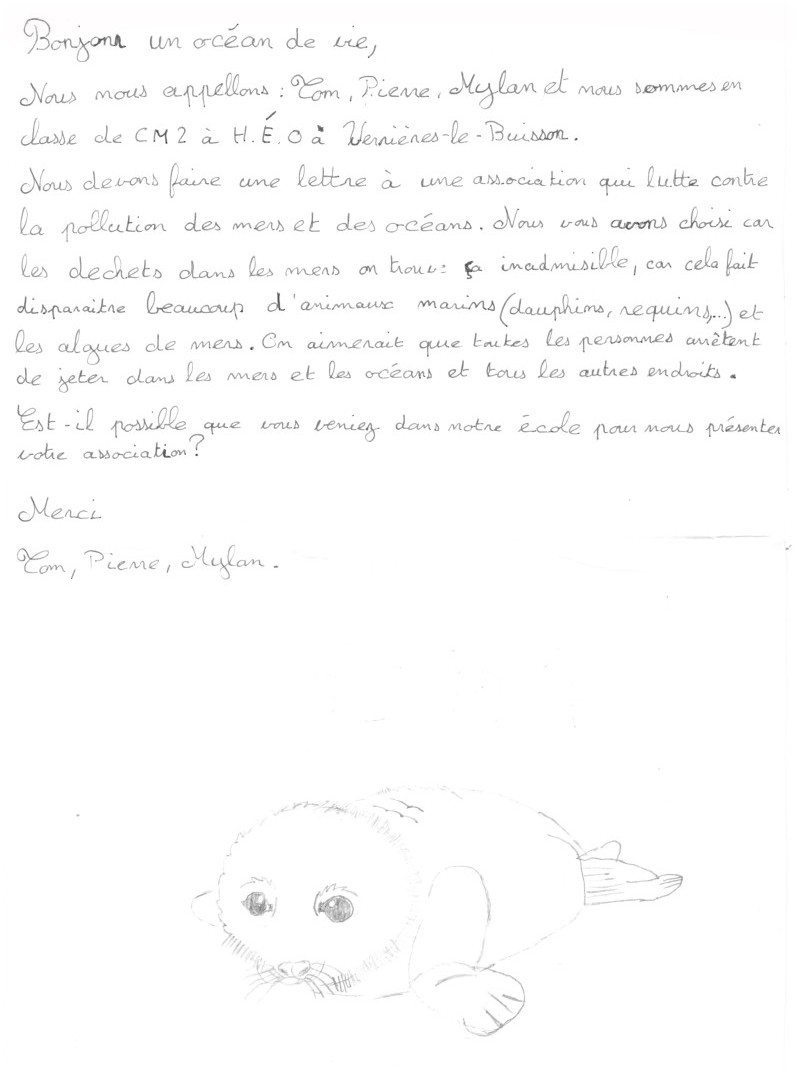 Bonjour un océan de vie,
Nous nous appellons : Tom, Pierre, Mylan et nous sommes en
classe de CM2 à H.É.O à Verrières-le-Buisson.
Nous devons faire une lettre à une association qui lutte contre
la pollution des mers et des océans. Nous vous avons choisi car
les dechets dans les mers on trouve : ça inadmisible, car cela fait
disparaitre beaucoup d'animaux marins (dauphins, requins,...) et
les algues de mers. On aimerait que toutes les personnes arrêtent
de jeter dans les mers et les océans et tous les autres endroits.
Est-il possible que vous veniez dans notre école pour nous présenter
votre association ?
Merci
Tom, Pierre, Mylan.